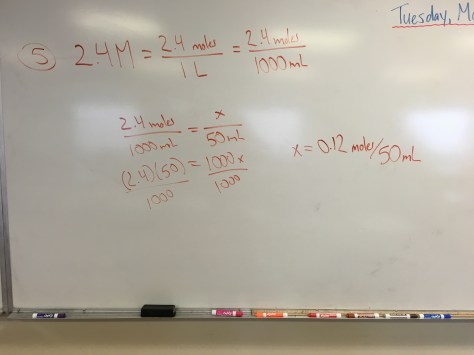 Tuesday, M
⑤ 2.4M = 2.4 moles/1L = 2.4 moles/1000mL
2.4 moles/1000mL = x/50mL
(2.4)(50)/1000 = 1000x/1000
x = 0.12 moles/50mL